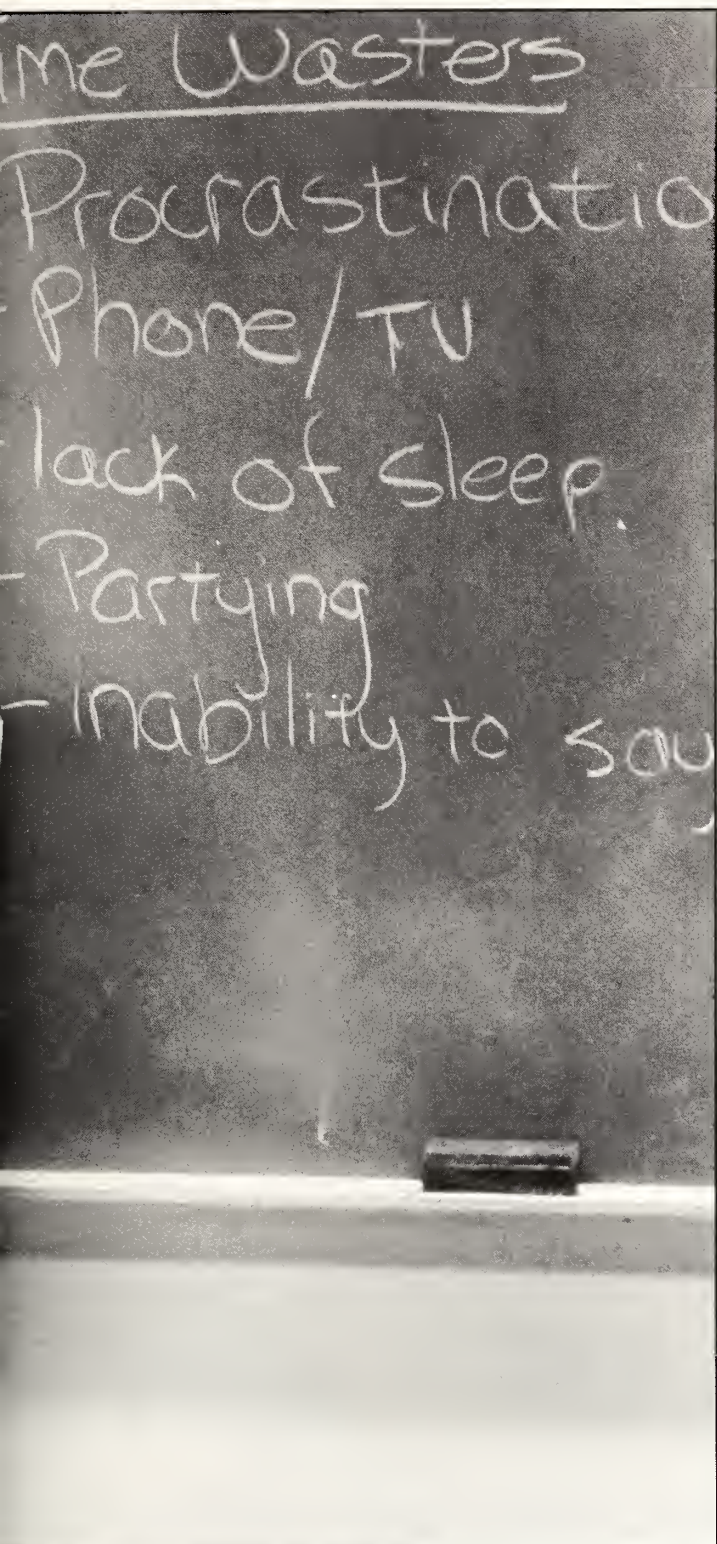 ime Wasters
Procrastinatio
- Phone/TV
- lack of sleep.
- Partying
- Inability to say